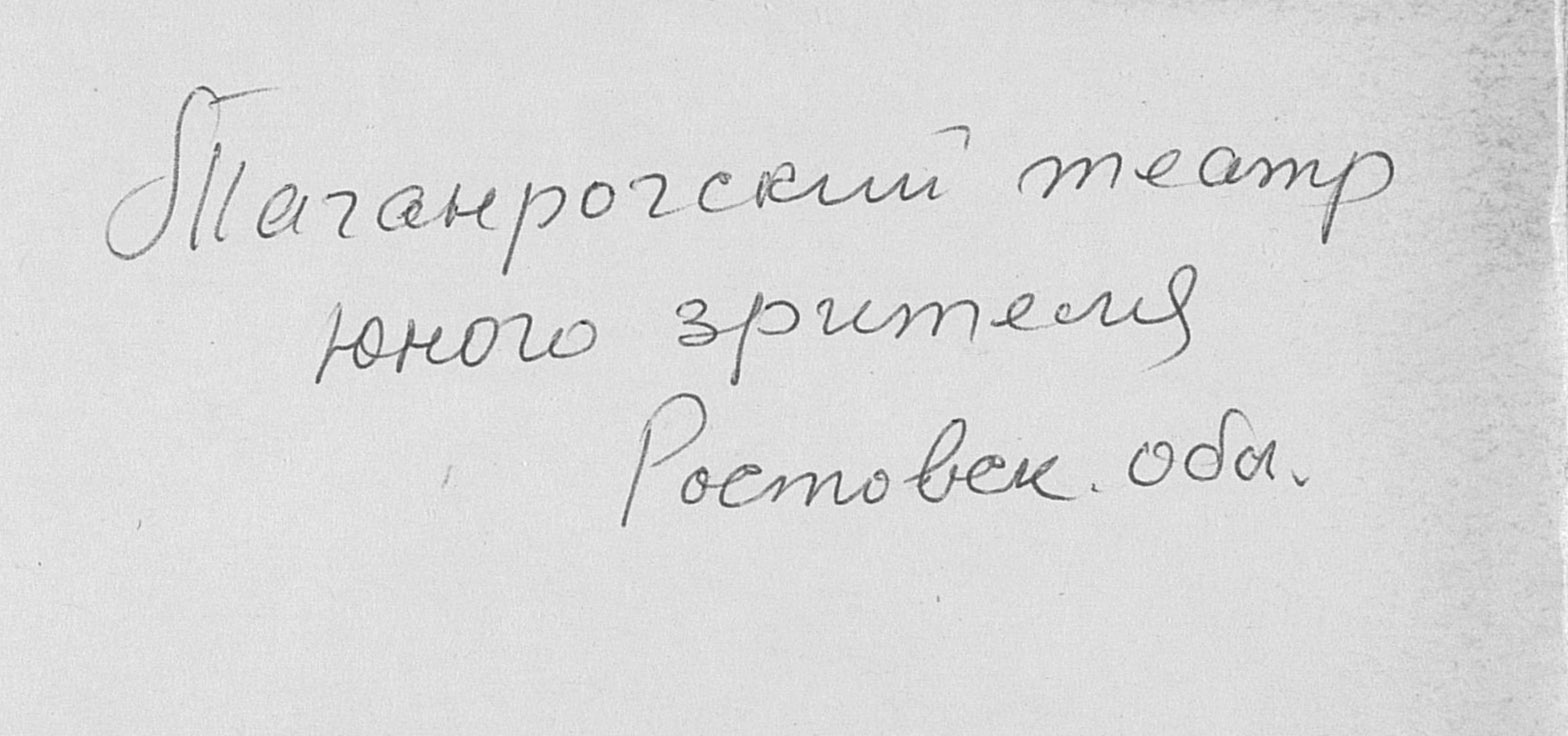 Таганрогский театр
юного зрителя
Ростовск. обл.